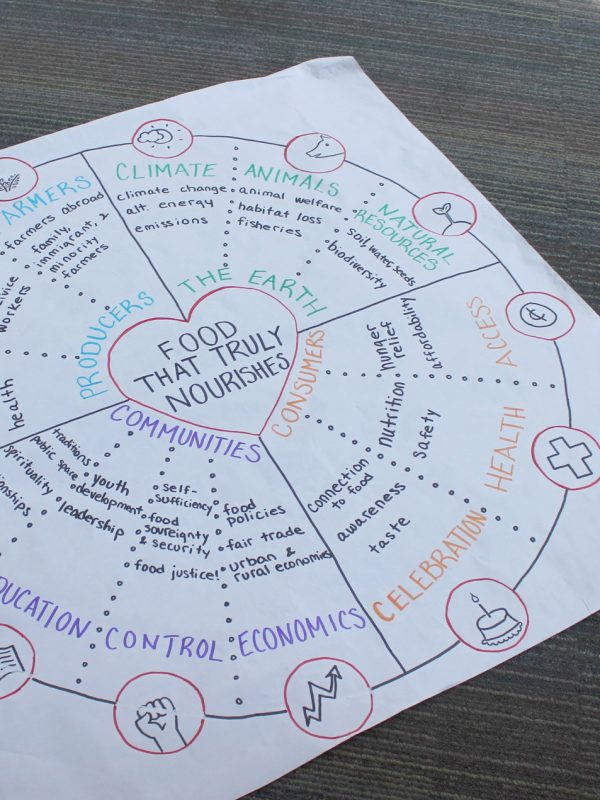 FOOD
THAT TRULY
NOURISHES
THE EARTH
CLIMATE
climate change
alt. energy
emissions
ANIMALS
animal welfare
habitat loss
fisheries
NATURAL
RESOURCES
soil, water, seeds
biodiversity
CONSUMERS
ACCESS
hunger
relief
affordability
HEALTH
nutrition
safety
CELEBRATION
connection
to food
awareness
taste
COMMUNITIES
ECONOMICS
food
policies
fair trade
urban &
rural economies
CONTROL
self-
sufficiency
food
sovreignty
& security
food justice!
DUCATION
traditions
public space
spirituality
onships
youth
development
leadership
PRODUCERS
ARMERS
farmers abroad
family,
immigrant, &
minority
farmers
workers
health